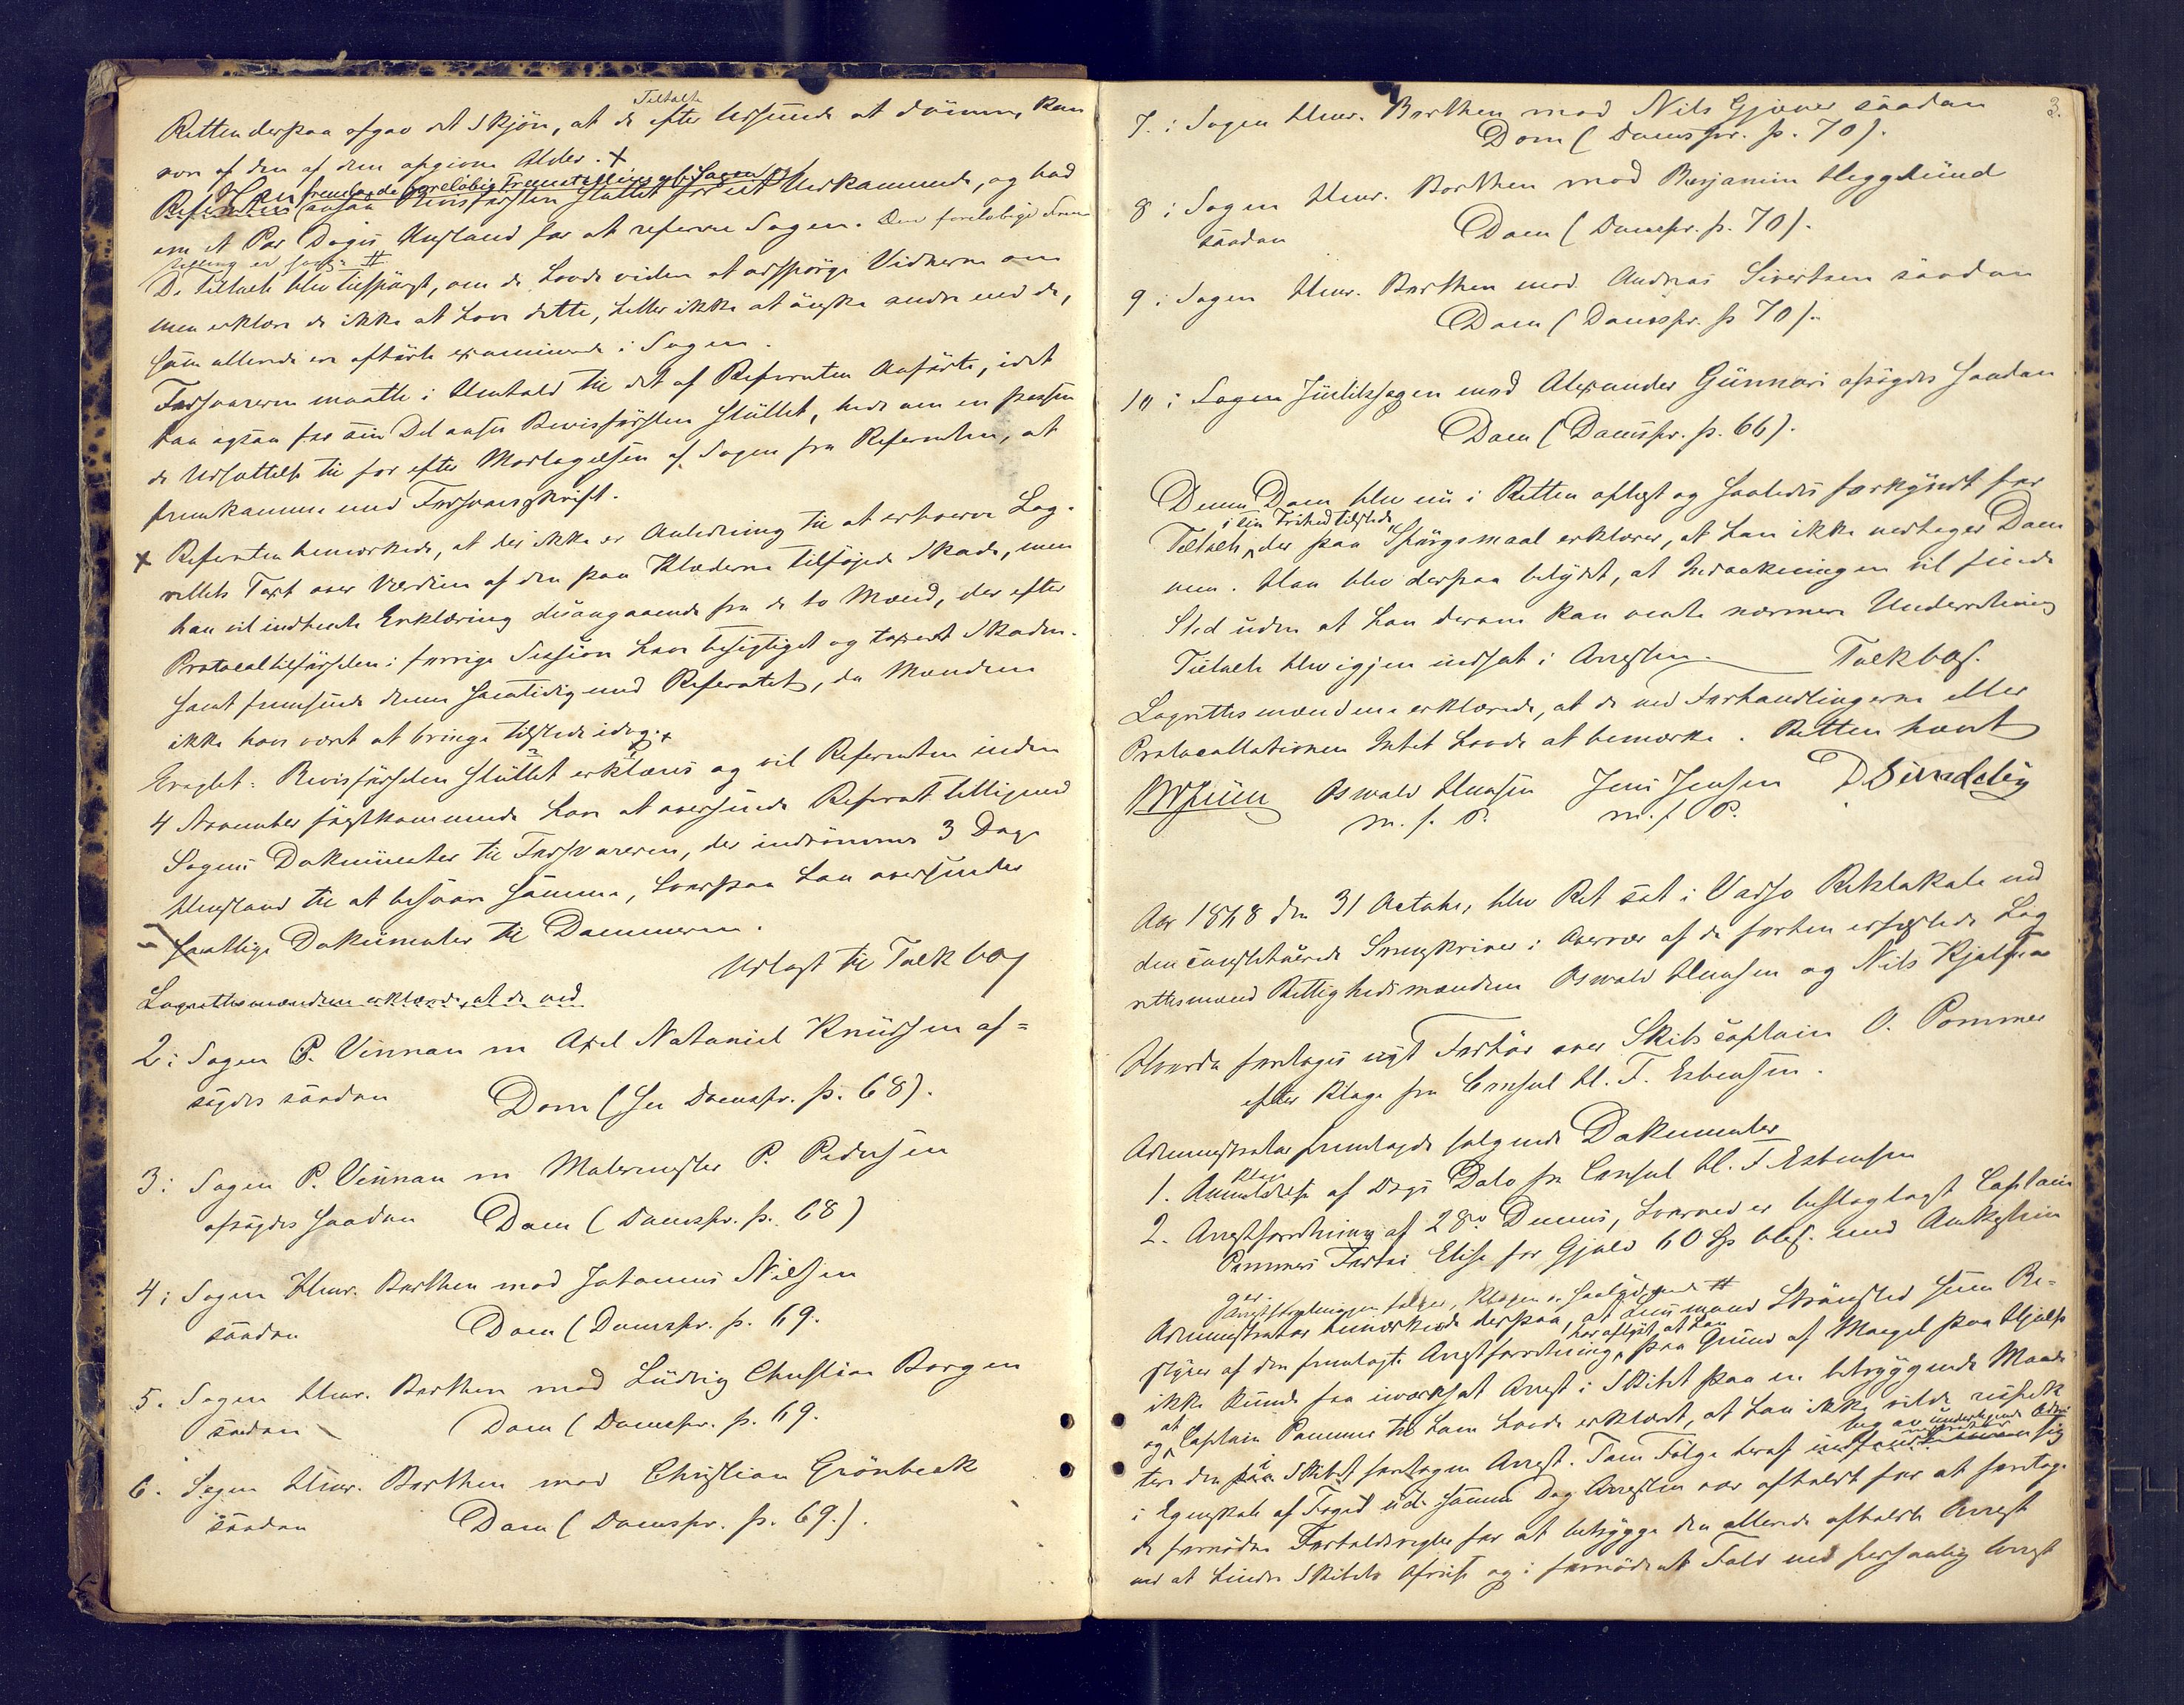 Tiltalte
Retten derpaa afgav det Skjøn, at de efter Udseende at dømme, kan
være af den af dem opgivne Alder. +
Han fremlagde foreløbig Fremstilling af Sagen
Referenten ansaa Bevisførslen sluttet for sit Vedkommende, og bad
om et Par Dages Henstand for at referere Sagen. Den foreløbige Frem
stilling er #
De Tiltalte blev tilspurgt, om de havde viden at adspørge Vidnerne om
men erklære de ikke at have dette, heller ikke at ønske andre end de,
som allerede ere afhørte examinerede i Sagen.
Forsvareren maatte i Henhold til det af Referenten Anførte, idet
han ogsaa for sin Del anser Bevisførslen sluttet, bede om en passen
de Udsættelse til for efter Modtagelsen af Sagen fra Referenten, at
fremkomme med Forsvarsskrift.
+ Referenten bemærkede, at der ikke er Anledning til at erhverve Lag-
rettets Taxt over Værdien af den paa Klæderne tilføiede Skade, men
han vil indhente Erklæring desangaaende fra de to Mænd, der efter
Protocoltilførslen i forrige Session have besigtiget og taxeret Skaden
samt fremsende denne samtidig med Referatet, da Mændene
ikke have været at bringe tilstede idag. +
Eragtet: Bevisførslen sluttet erklæres og vil Referenten inden
4 November førstkommende have at oversende Referat tilligemed
Sagens Dokumenter til Forsvareren, der indrømmes 3 Dage
Henstand til at besvare samme, hvorpaa han oversender
samtlige Dokumenter til Dommeren.
Udlagt til Tolk
Lagrettesmændene erklærede, at de ved
2: Sagen P. Vinnan m Axel Nataniel Knudsen af=
sagdes saadan Dom (se Domspr. p. 68).
3: Sagen P. Vinnan m Malermester P. Pedersen
afsagdes saadan Dom (Domspr. p. 68)
4: Sagen Hmr. Barthen mod Johannes Nilsen
saadan Dom (Domspr. p. 69.
5. Sagen Hmr. Barthen mod Ludvig Christian Borgen
saadan Dom (Domspr. p. 69.
6. Sagen Hmr. Barthen mod Christian Grønbeck
saadan Dom (Domspr. p. 69.).
3.
7. i Sagen Hmr. Barthen mod Nils Gjæver saadan
Dom (Domspr. p. 70).
8 i Sagen Hmr. Barthen mod Benjamin Heggelund
saadan Dom (Domspr. p. 70).
9 i Sagen Hmr. Barthen mod Andreas Sivertsen saadan
Dom (Domspr. p 70).
10 i Sagen Justitssagen mod Alexander Gunnari afsagdes saadan
Dom (Domspr. p. 66).
Denne Dom blev nu i Retten oplæst og saaledes forkyndt for
i sin Frihed tilstede
Tiltalte, der paa Spørgsmaal erklærer, at han ikke vedtager Dom
men. Han blev derpaa betydet, at Indankningen vil finde
Sted uden at han derom kan vente nærmere Underretning
Tiltalte blev igjen indsat i Arresten. Tolk
Lagrettesmændene erklærede, at de ved Forhandlingerne eller
Protocollationen Intet havde at bemærke. Retten hævet
Oswald Hansen Jens Jensen
m. f. P. m. f P.
Aar 1868 den 31 October, blev Ret sat i Vadsø Retslokale ved
den constituerede Sorenskriver i Overvær af de forhen edfæstede Lag
rettesmænd Rettighedsmændene Oswald Hansen og Nils
Hvorda foretoges nyt Forhør over Skibscaptain O. Pommer
efter Klage fra Consul H. F. Esbensen.
Administrator fremlagde følgende Dokumenter
Klage
1. Anmeldelse af Dags Dato fra Consul H. F. Esbensen
2. Arrestforretning af 28de Dennes, hvorved er beslaglagt Captain
Pommers Fartøi Elise for Gjæld 60 med Omkostnin
ger.
Arrestforretningen følger, Klagen er saalydende #
Administrator bemærkede derpaa, at Lensmand som Be-
har oplyst at han
styrer af den fremlagte Arrestforretning, paa Grund af Mangel paa Hjælp
ikke kunde faa iværksat Arrest i Skibet paa en betryggende Maade
at
og Captain Pommer til ham havde erklært, at han ikke vilde respek
tere den paa Skibet foretagne Arrest. Som Følge heraf sig
i Egenskab af Foged ud samme Dag Arresten var afholdt for at foretage
de fornødne Forholdsregler for at betrygge den allerede afholdte Arrest
ved at hindre Skibets Afreise og i fornødent Fald ved personlig Arrest